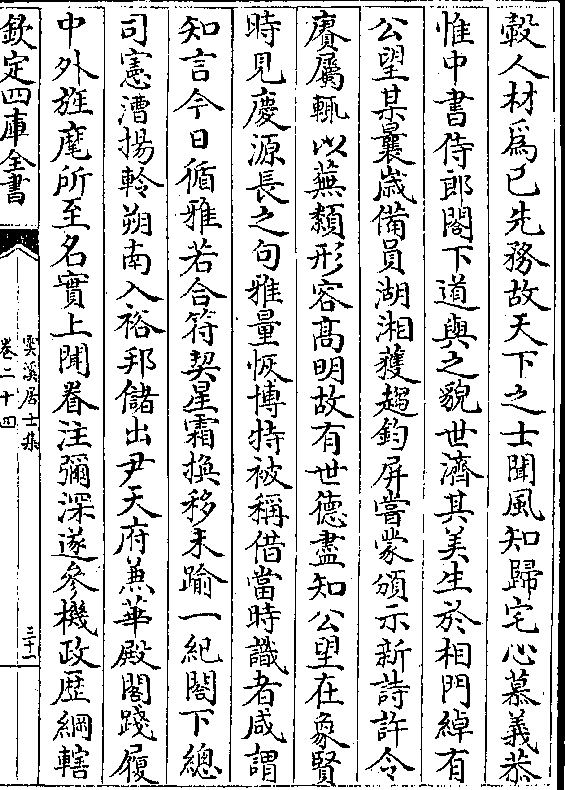 轂人材爲己先務故天下之士聞風知歸宅心慕義恭
惟中書侍郎閣下道與之貌世濟其美生於相門綽有
公望某曩歲備員湖湘獲趨鈞屏嘗蒙頒示新詩許令
賡屬輒以蕪纇形容高明故有世德盡知公望在象賢
時見慶源長之句雅量恢博特被稱借當時識者咸謂
知言今日循雅若合符契星霜換移未踰一紀閣下總
司憲漕揚軨朔南入裕邦儲出尹天府兼華殿閣踐履
中外旌麾所至名實上聞眷注彌深遂參機政歴綱轄
欽定四庫全書
雲溪居士集
卷二十四
三十一